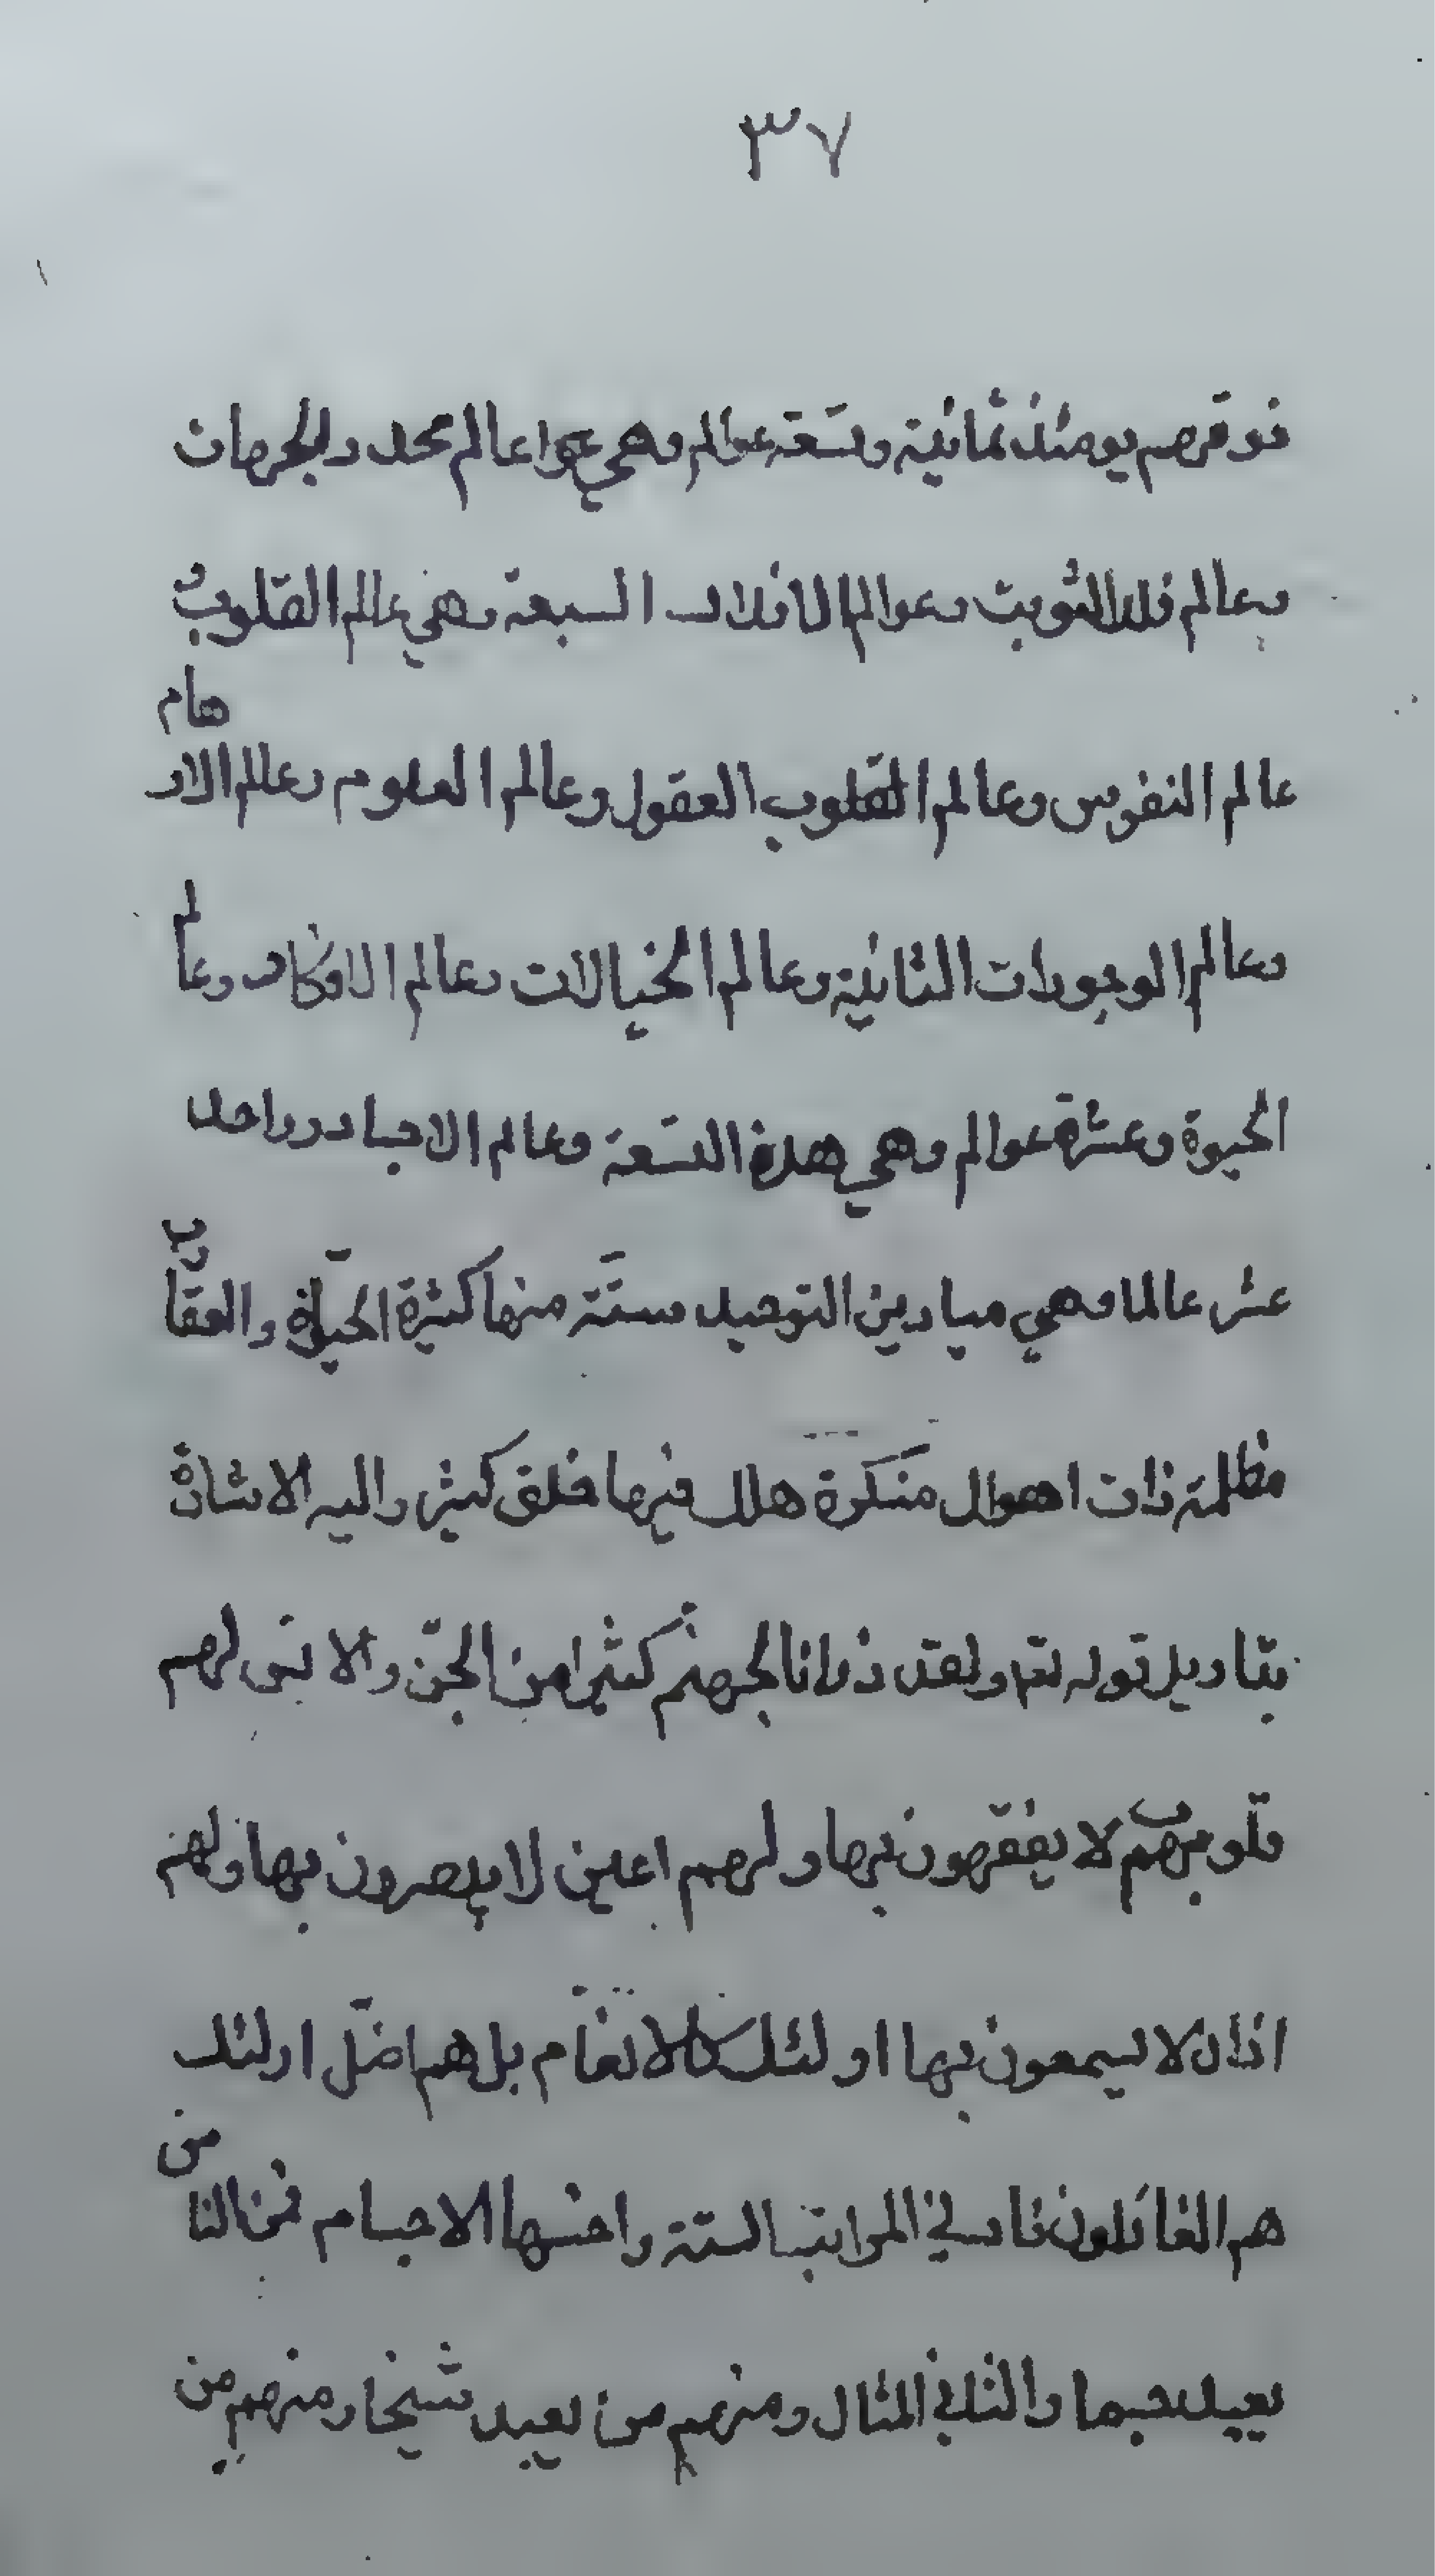 ٣٧
فوقهم يومئذ ثمانية وتسعة عوالم وهي عوا عالم محدد الجهات
وعالم فلك الثوبت وعوالم الافلاك السبعة وهي عالم القلوب
عالم النفوس وعالم القلوب العقول وعالم العلوم وعالم الاوهام
وعالم الوجودات الثانية وعالم الخيالات وعالم الافكار وعالم
الحيوة وعشرة عوالم وهي هذه التسعة وعالم الاجساد واحد
عشر عالما وهي ميادين التوحيد ستة منها كثيرة الحياة والعقارب
مظلمة ذات اهوال منكرة هلك فيها خلق كثير واليه الاشارة
بتاويل قوله تع ولقد ذرانا لجهنم كثيرا من الجن والانس لهم
قلوب لا يفقهون بها ولهم اعين لا يبصرون بها ولهم
اذان لا يسمعون بها اولئك كالانعام بل هم اضل اولئك
هم الغافلون في المراتب الستة واخسها الاجسام فمن الناس من
يعبد جسما والثاني المثال ومنهم من يعبد شيخا ومنهم من